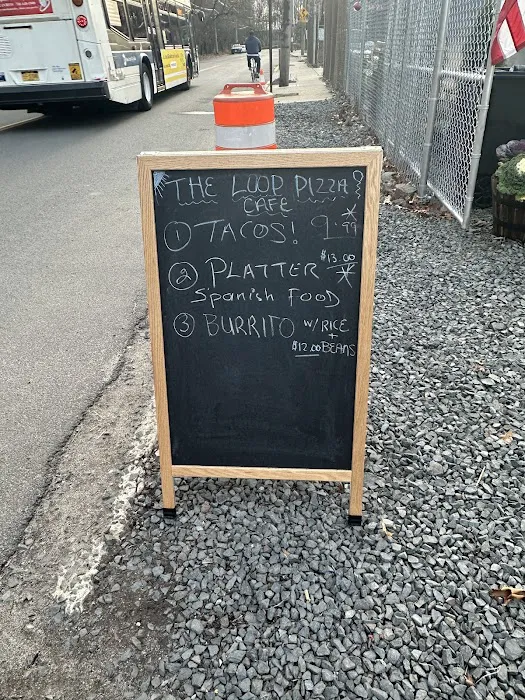 THE LOOP PIZZA
CAFE
1 TACOS! 9.99
2 PLATTER $13.00
Spanish FOOD
3 BURRITO W/ RICE
+
$12.00 BEANS